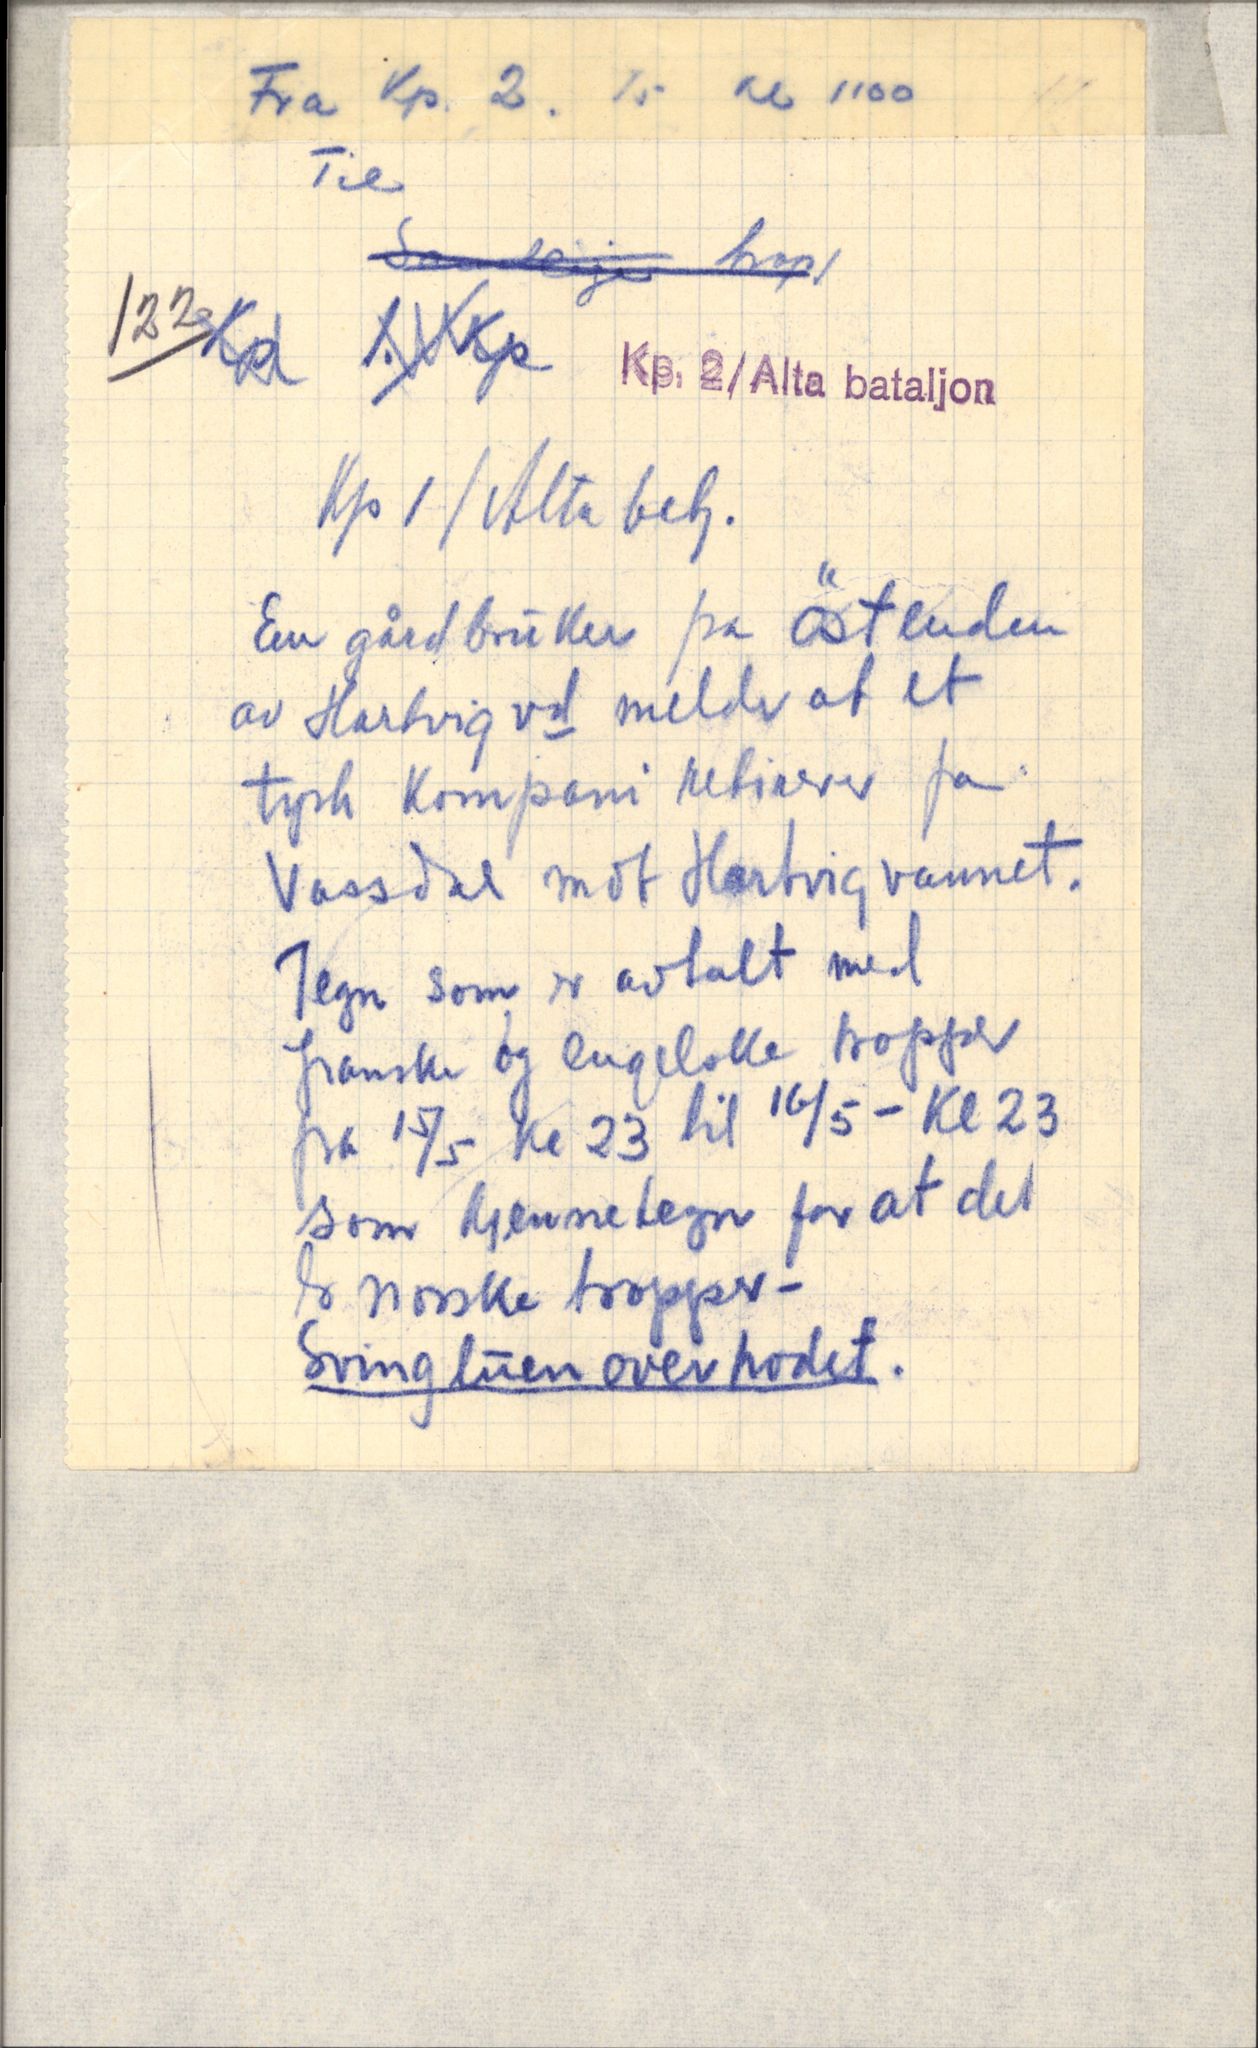 Fra Kp. 2. Kl 1100
Til
Samtlige tropp
122 Kp Kp
Kp. 2/Alta bataljon
Kp 1/Alta batj.
En gårdbrüker på östenden
av Hartvigvd melder at et
tysk Kompani retirerer fra
Vassdal mot Hartvigvannet.
Tegn som er avtalt med
franske og engelske tropper
fra 15/5 Kl 23 til 16/5 - Kl 23
som kjennetegn for at det
er norske tropper -
Sving lüen over hodet.